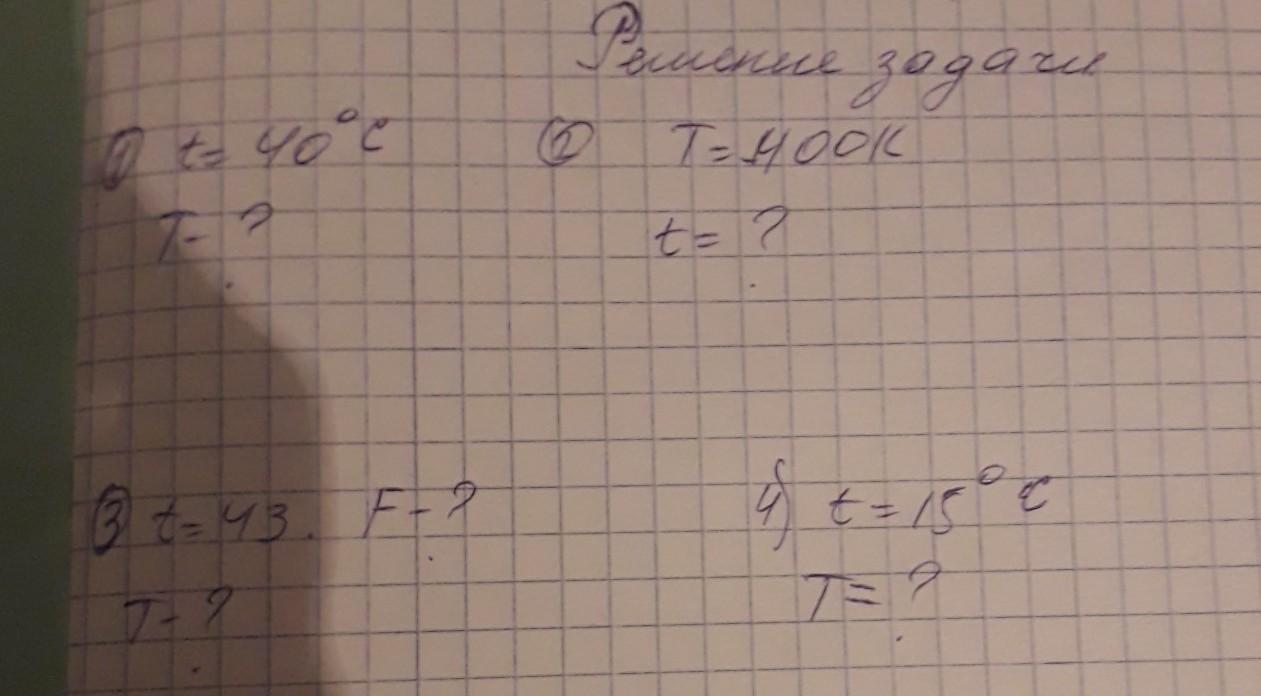 Решение задачи
① t= 40°C ② T=400K
T-? t=?
③ t=43. F-? 4) t=15°C
T-? T=?